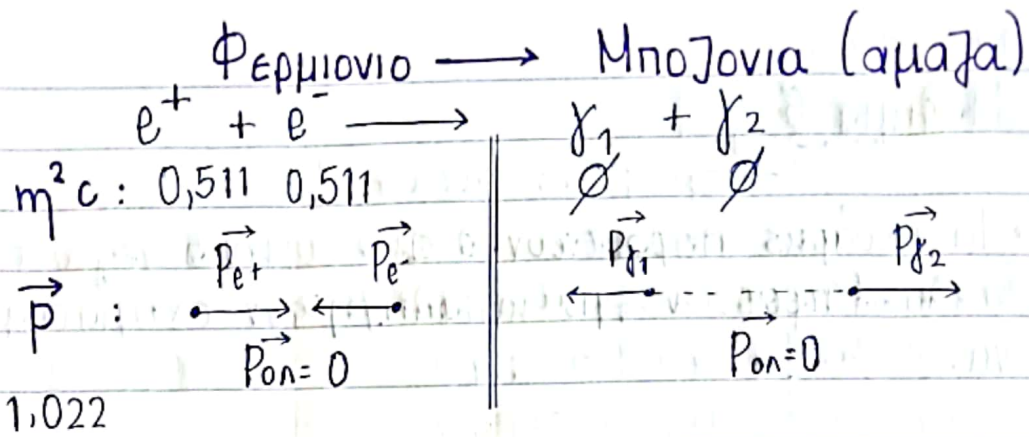 Φερμιονιο → Μποζονια (αμαζα)
e⁺ + e⁻ → γ₁ + γ₂
m²c : 0,511 0,511 ∅ ∅
Pe+ Pe- Pγ₁ Pγ₂
P :
Pολ= 0 Pολ=0
1,022